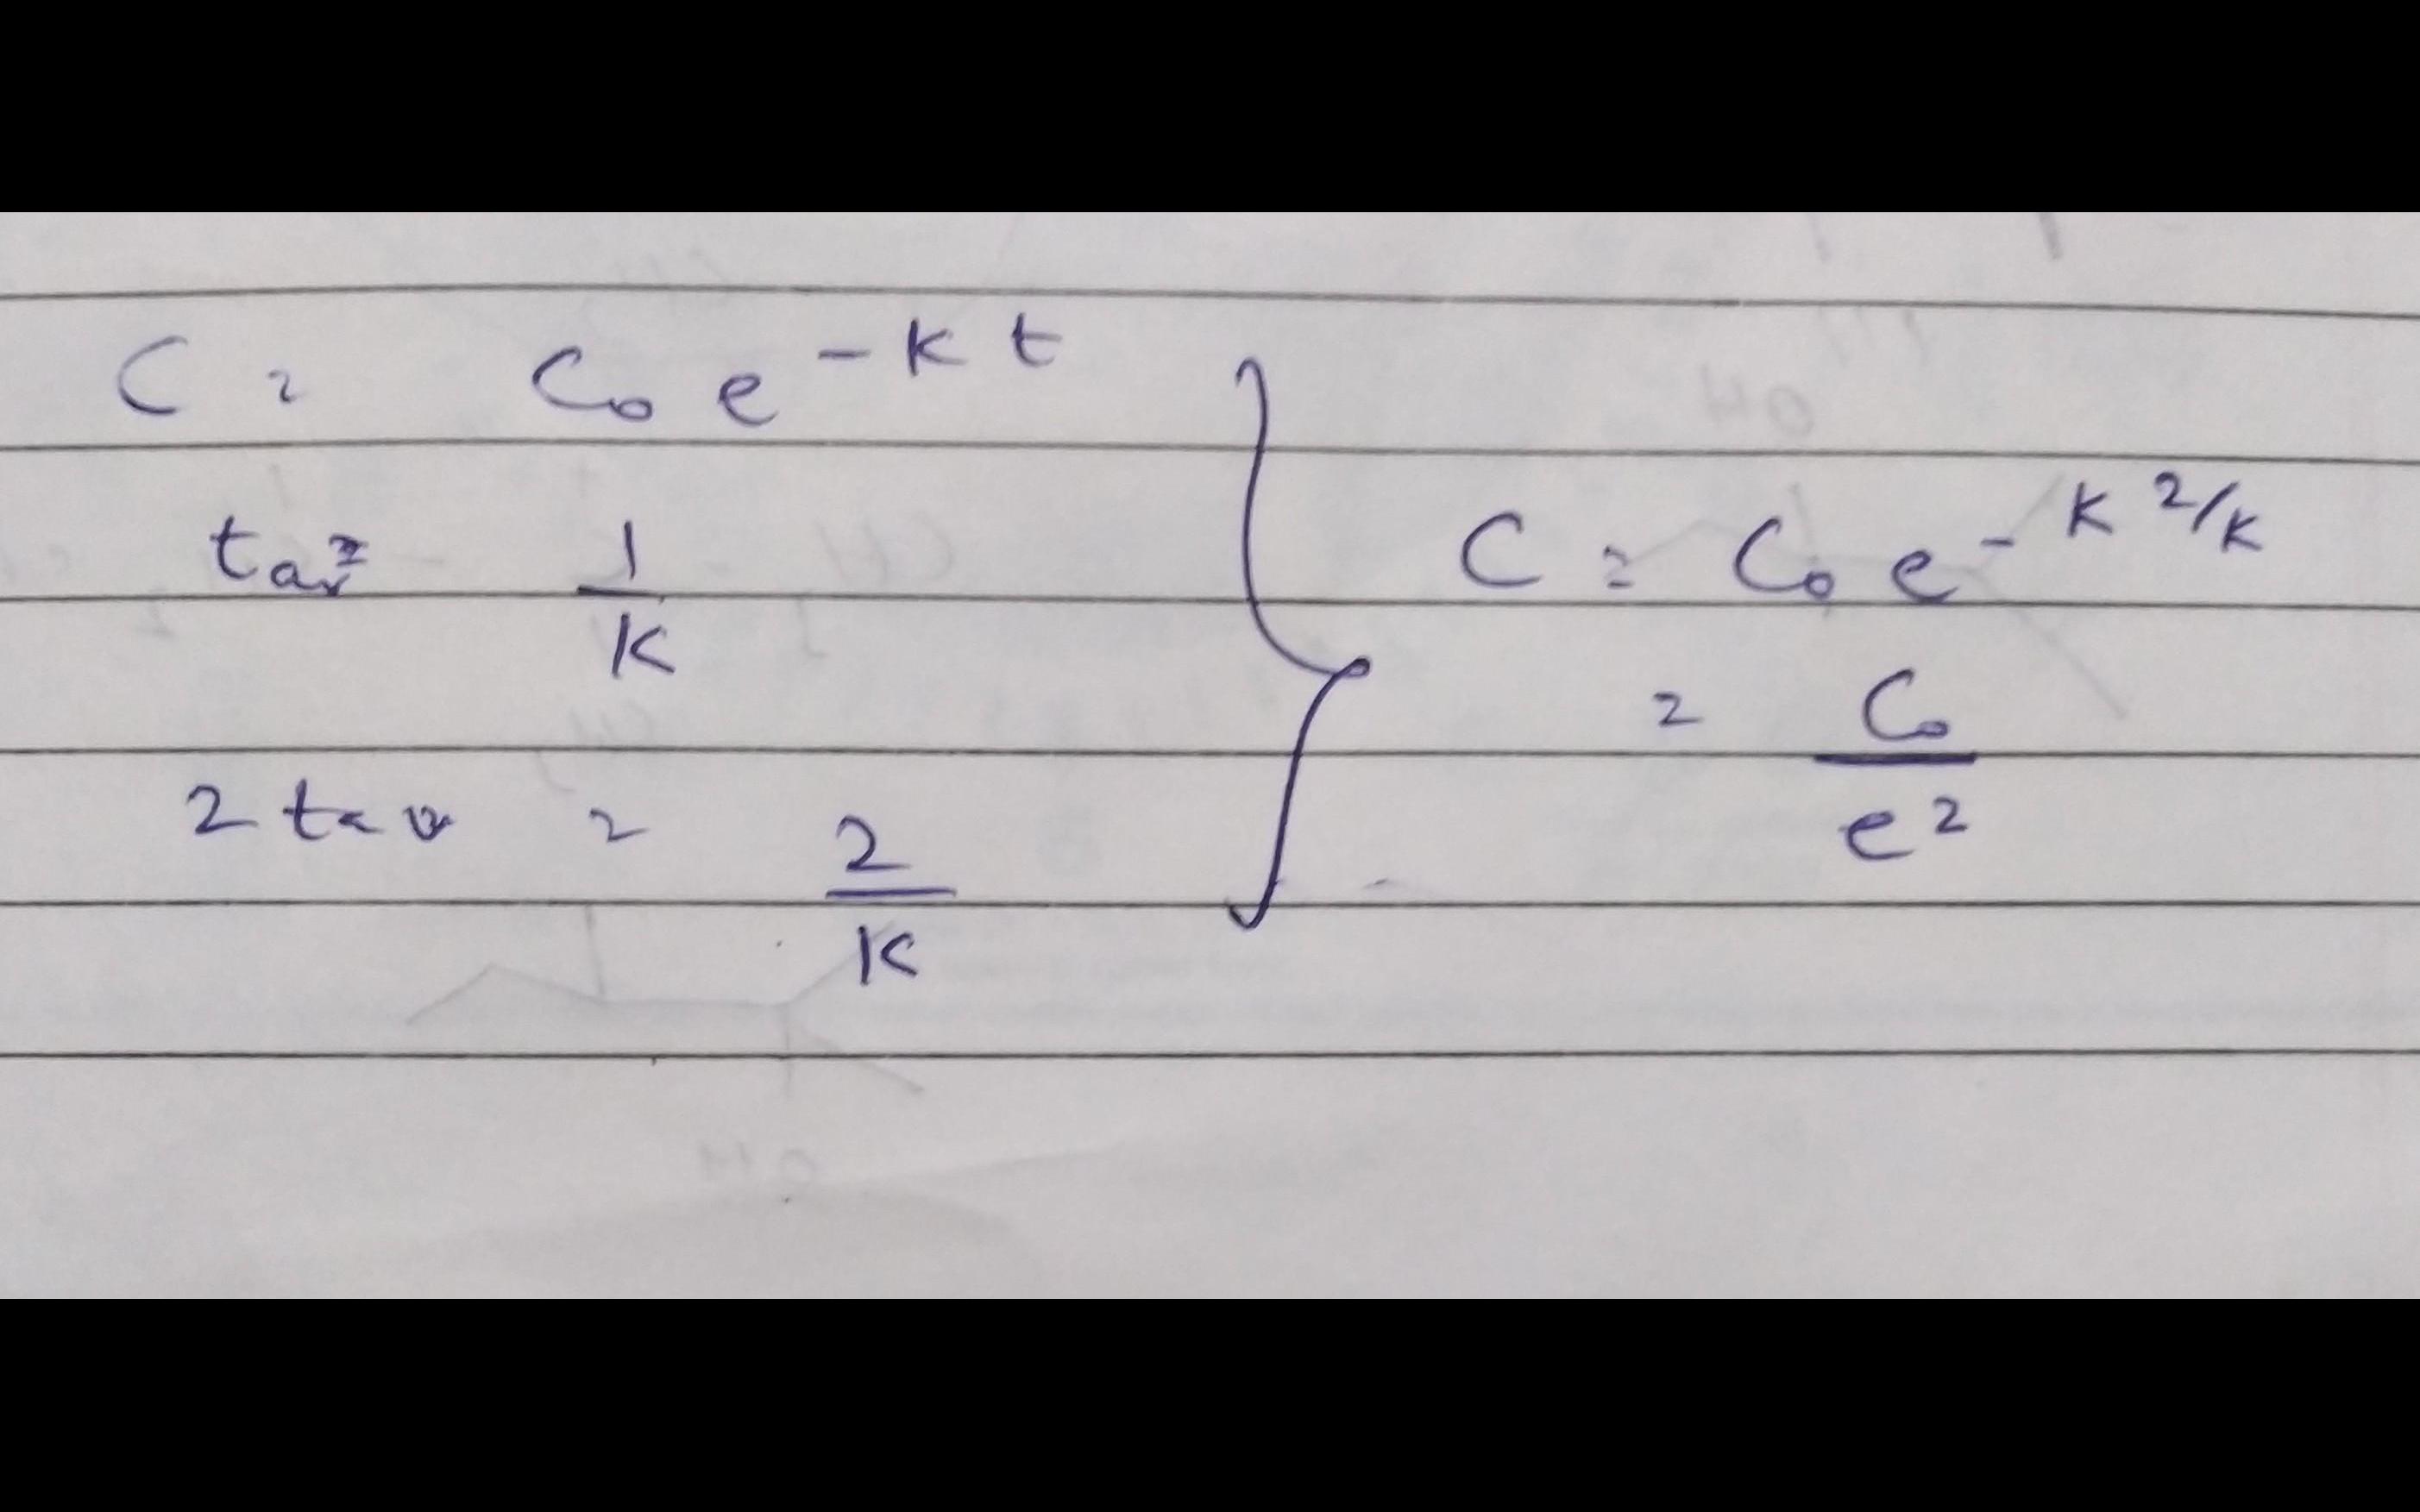 C = C₀ e^{-kt}
t_{av} = 1/K
2 t_{av} = 2/K
C = C₀ e^{-K 2/K}
= C₀/e²